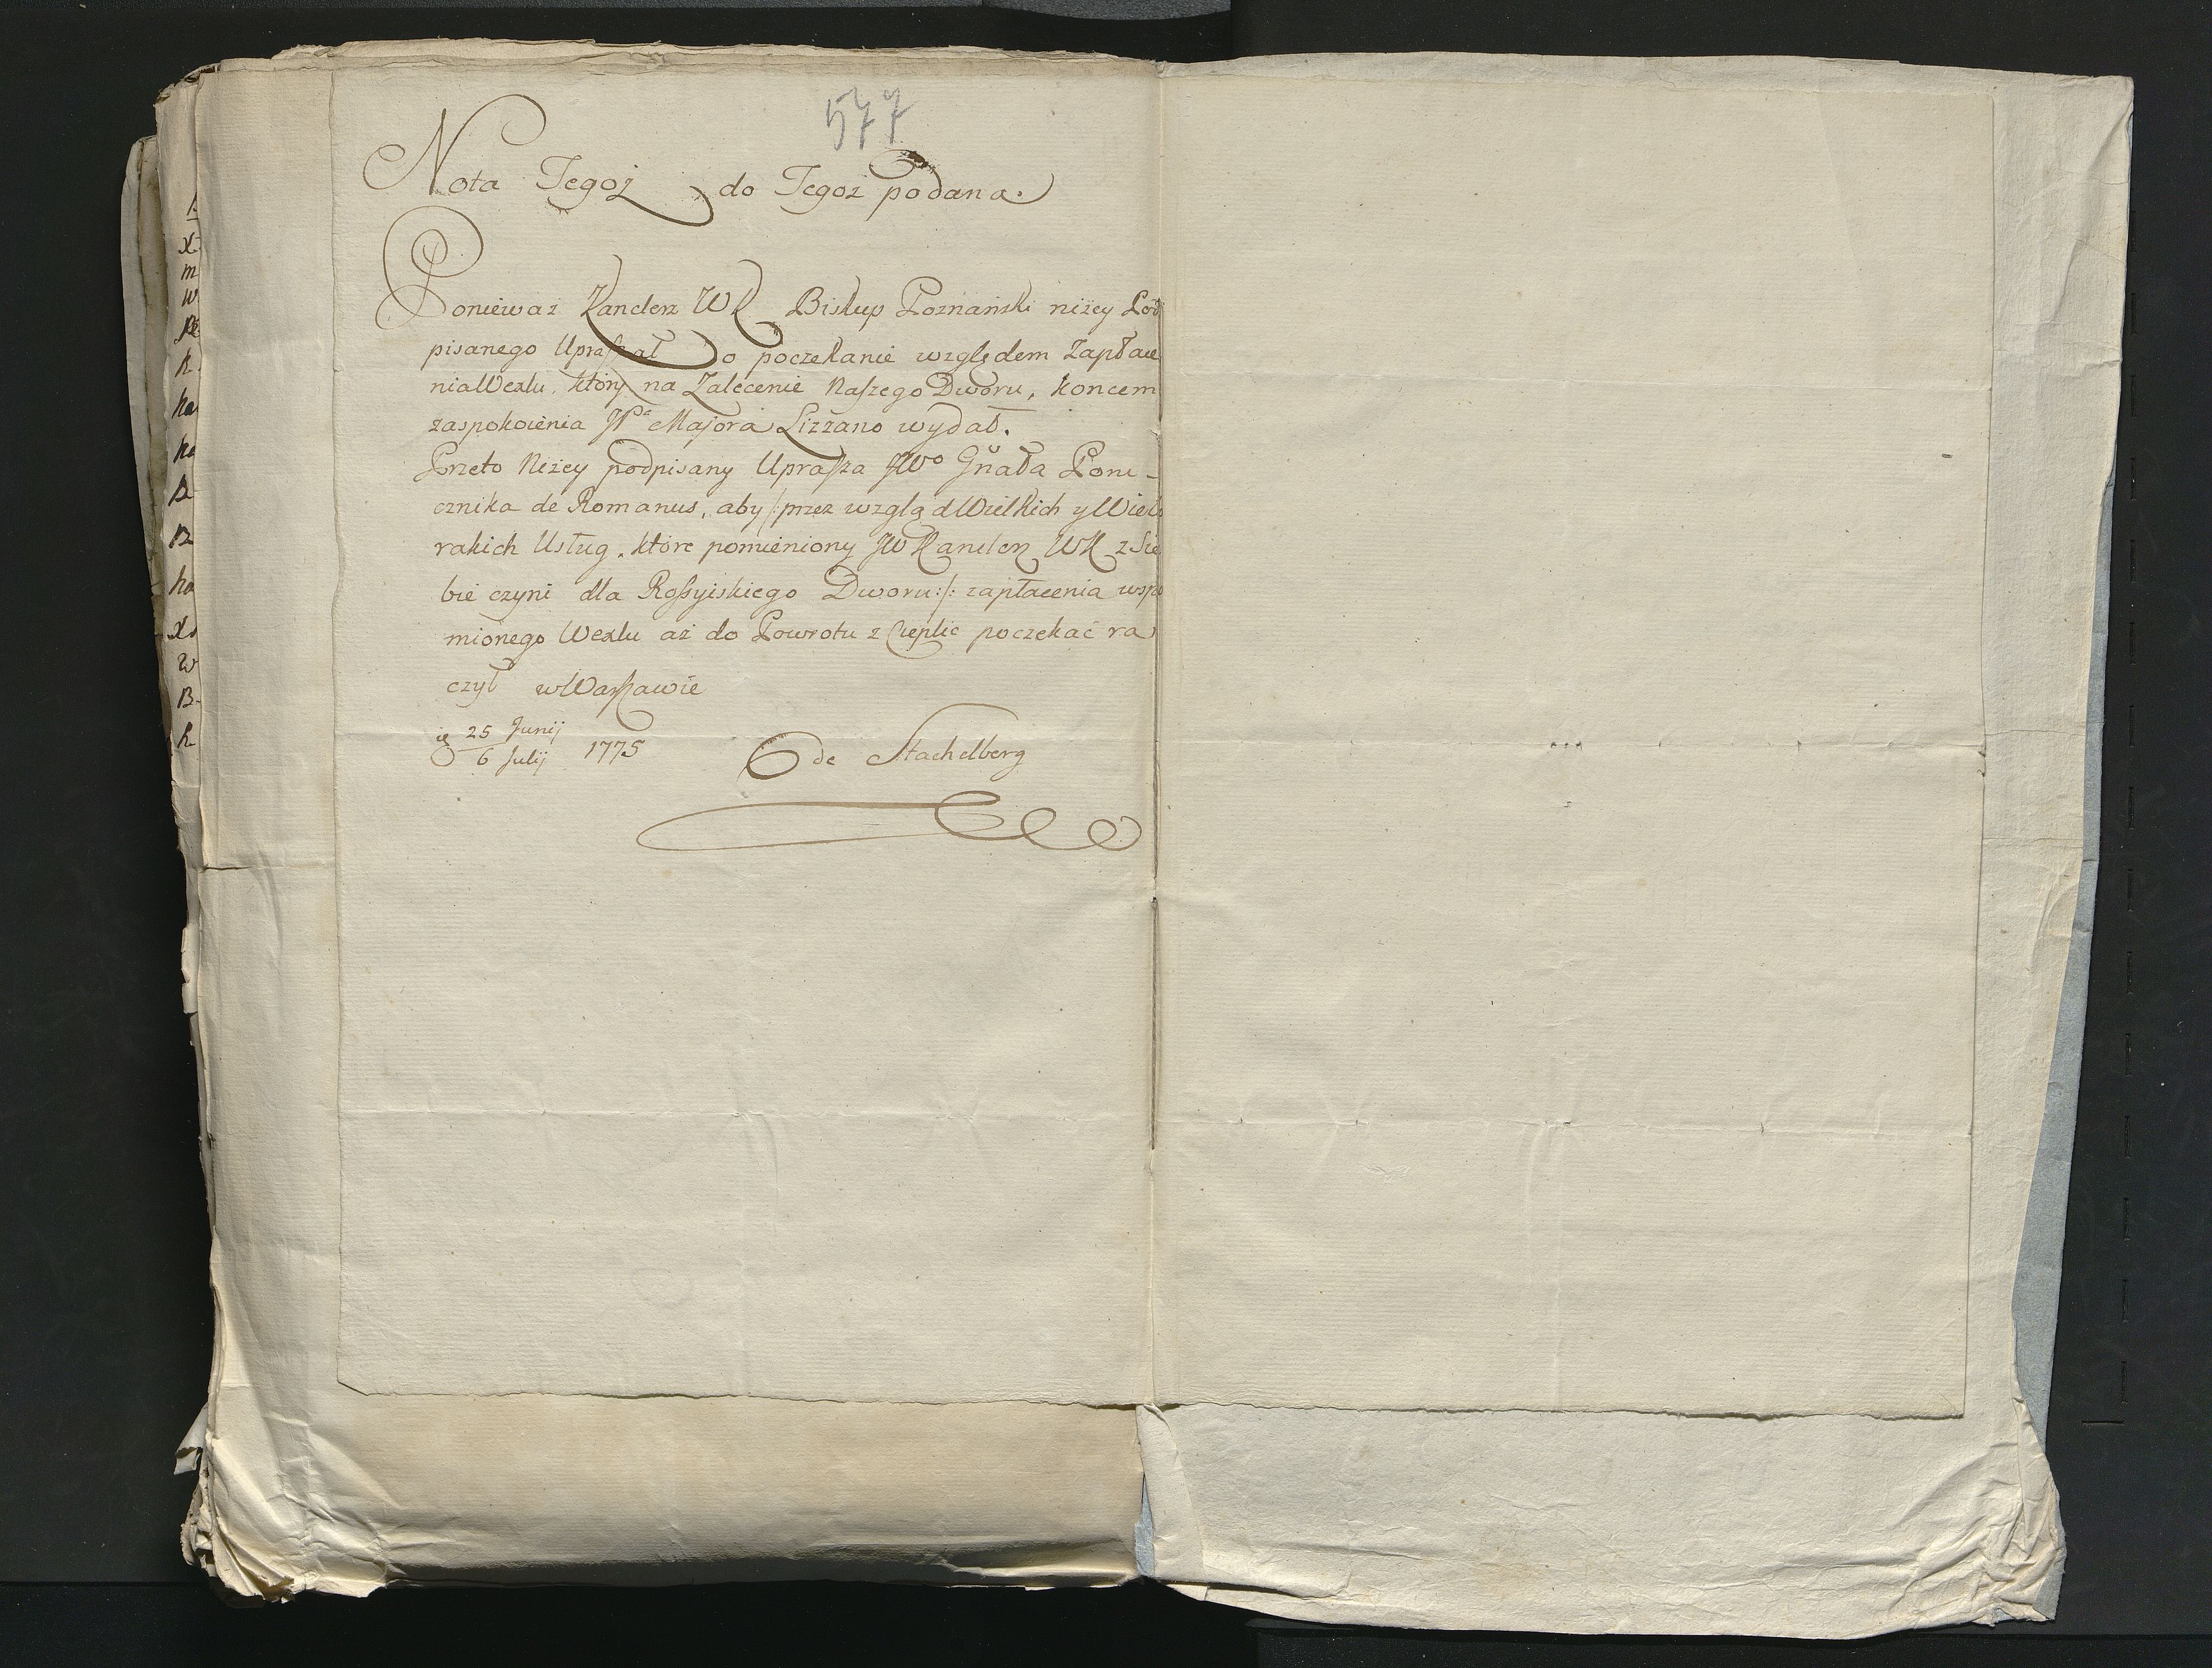 577
Nota Tegoż do Tegoż podana.
Ponieważ Kanclerz WK Biskup Poznański niżey Pod
pisanego Upraszał o poczekanie względem Zapłace
nia Wexlu, który na Zalecenie Naszego Dworu, koncem
zaspokoienia JPa Majora Lizzano wydał.
Przeto Niżey podpisany Uprasza JWo Gnała Poru-
cznika de Romanus, aby /: przez wzgląd Wielkich y Wielo
rakich Usług, które pomieniony JW Kanclerz WK z Sie
bie czyni dla Rossyiskiego Dworu :/: zapłacenia wspo
mionego Wexlu aż do Powrotu z Cieplic poczekać ra
czył w Warszawie
25 Junij
6 Julij 1775
de Stachelberg